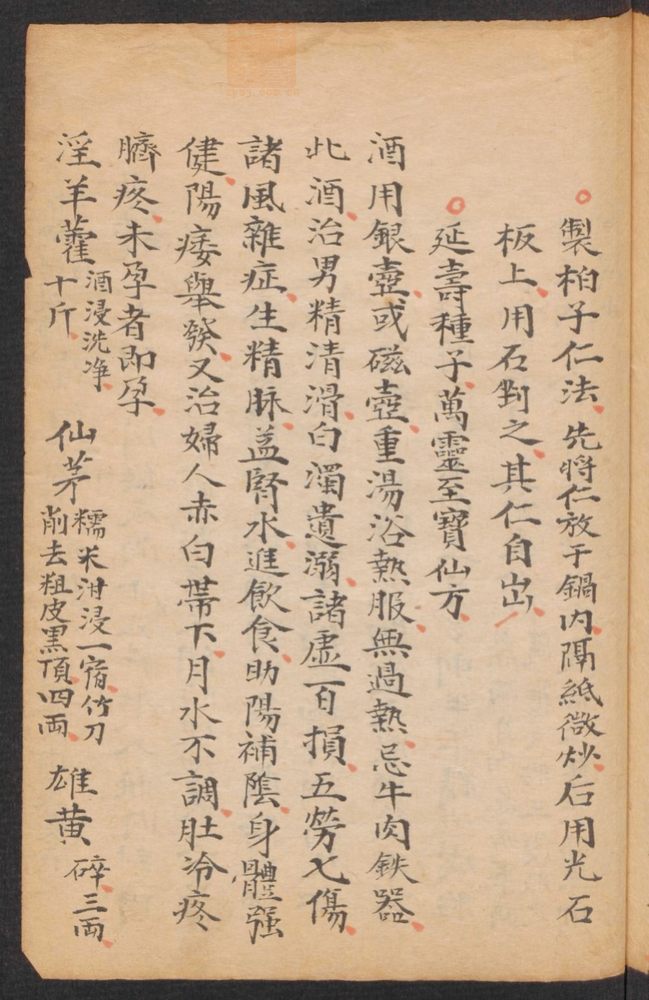 製柏子仁法先將仁放于鍋内隔紙微炒后用光石
板上用石對之其仁自出
延壽種子萬靈至寶仙方
酒用銀壺或磁壺重湯浴熱服無過熱忌牛肉鉄器
此酒治男精清滑白濁遺溺諸虛百損五勞七傷
諸風雜症生精脉益腎水進飲食助陽補陰身體强
健陽痿舉發又治婦人赤白帶下月水不調肚冷疼
臍疼未孕者即孕
淫羊藿酒浸洗净十斤 仙茅糯米泔浸一宿竹刀削去粗皮黑頂四両 雄黄碎三両